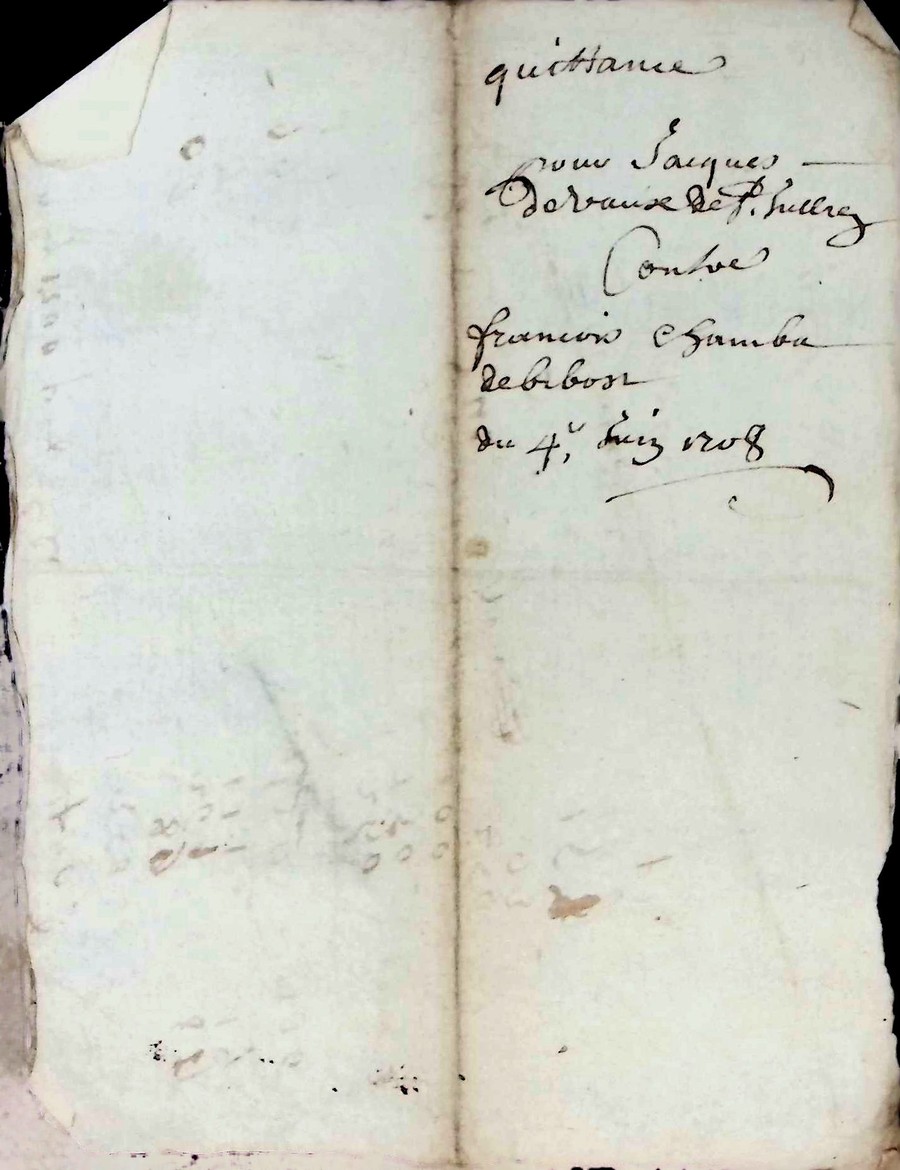 quittance
pour Jacques
devaux de St. Jullien
Contre
francois Chamba
de bibost
du 4e, Juin 1708